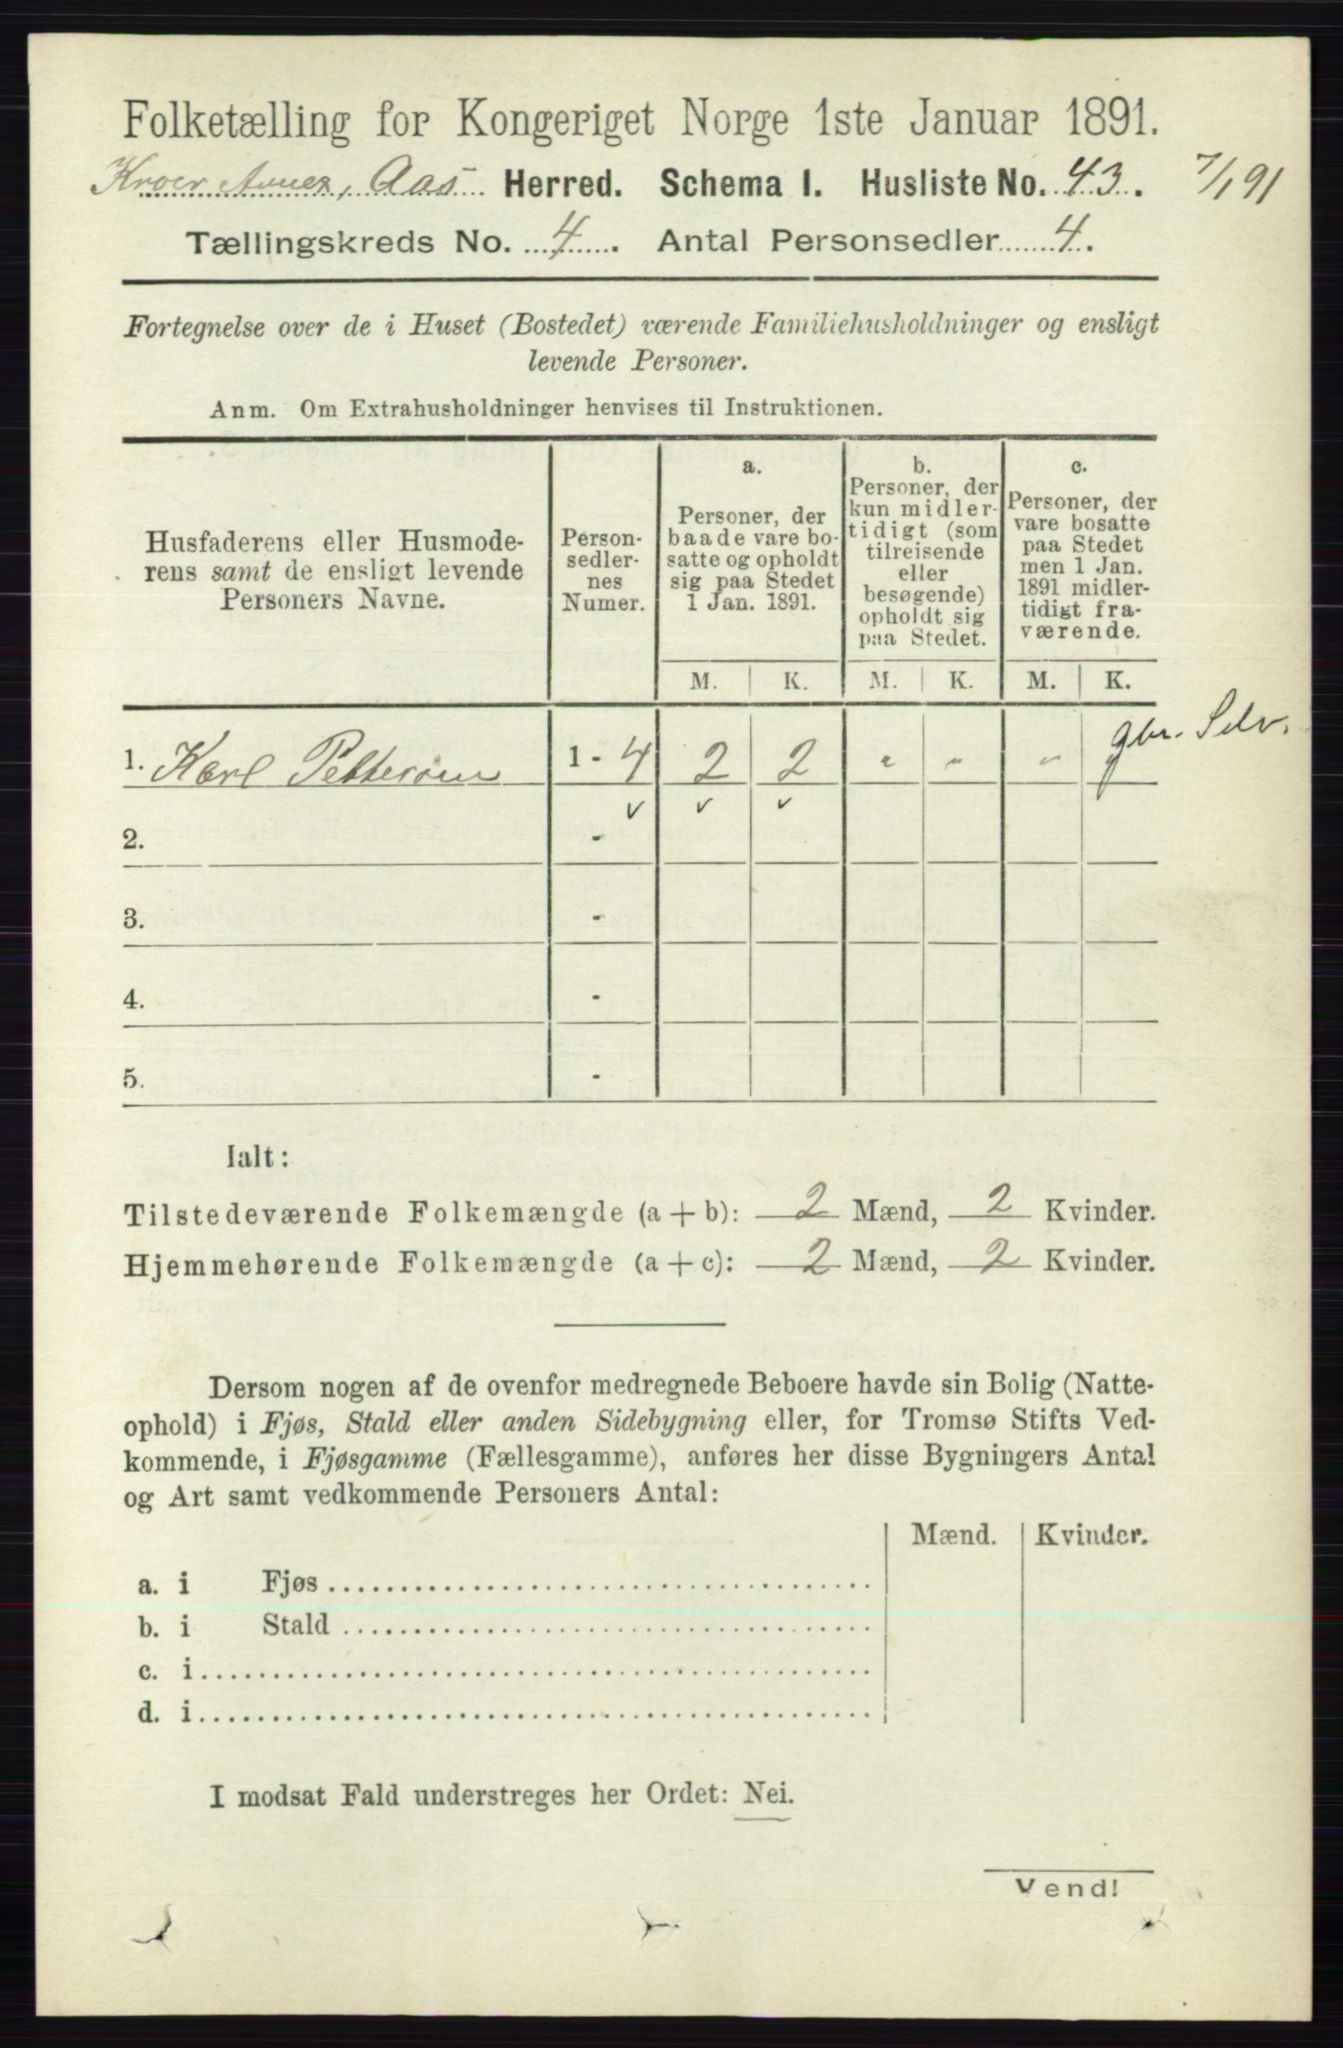 Folketælling for Kongeriget Norge 1ste Januar 1891.
Kroer Annex, Aas Herred. Schema I. Husliste No. 43. 7/1 91
Tællingskreds No. 4. Antal Personsedler 4.
Fortegnelse over de i Huset (Bostedet) værende Familiehusholdninger og ensligt
levende Personer.
Anm. Om Extrahusholdninger henvises til Instruktionen.
Husfaderens eller Husmode-
rens samt de ensligt levende
Personers Navne.
Person-
sedler-
nes
Numer.
a.
Personer, der
baade vare bo-
satte og opholdt
sig paa Stedet
1 Jan. 1891.
b.
Personer, der
kun midler-
tidigt (som
tilreisende
eller
besøgende)
opholdt sig
paa Stedet.
c.
Personer, der
vare bosatte
paa Stedet
men 1 Jan.
1891 midler-
tidigt fra-
værende.
M. K. M. K. M. K.
gbr. Selv.
1. Karl Pettersen 1 - 4 2 2 " " " "
v v v
2. -
3. -
4. -
5. -
Ialt:
Tilstedeværende Folkemængde (a + b): 2 Mænd, 2 Kvinder.
Hjemmehørende Folkemængde (a + c): 2 Mænd, 2 Kvinder.
Dersom nogen af de ovenfor medregnede Beboere havde sin Bolig (Natte-
ophold) i Fjøs, Stald eller anden Sidebygning eller, for Tromsø Stifts Ved-
kommende, i Fjøsgamme (Fællesgamme), anføres her disse Bygningers Antal
og Art samt vedkommende Personers Antal:
Mænd. Kvinder.
a. i Fjøs
b. i Stald
c. i
d. i
I modsat Fald understreges her Ordet: Nei.
Vend!